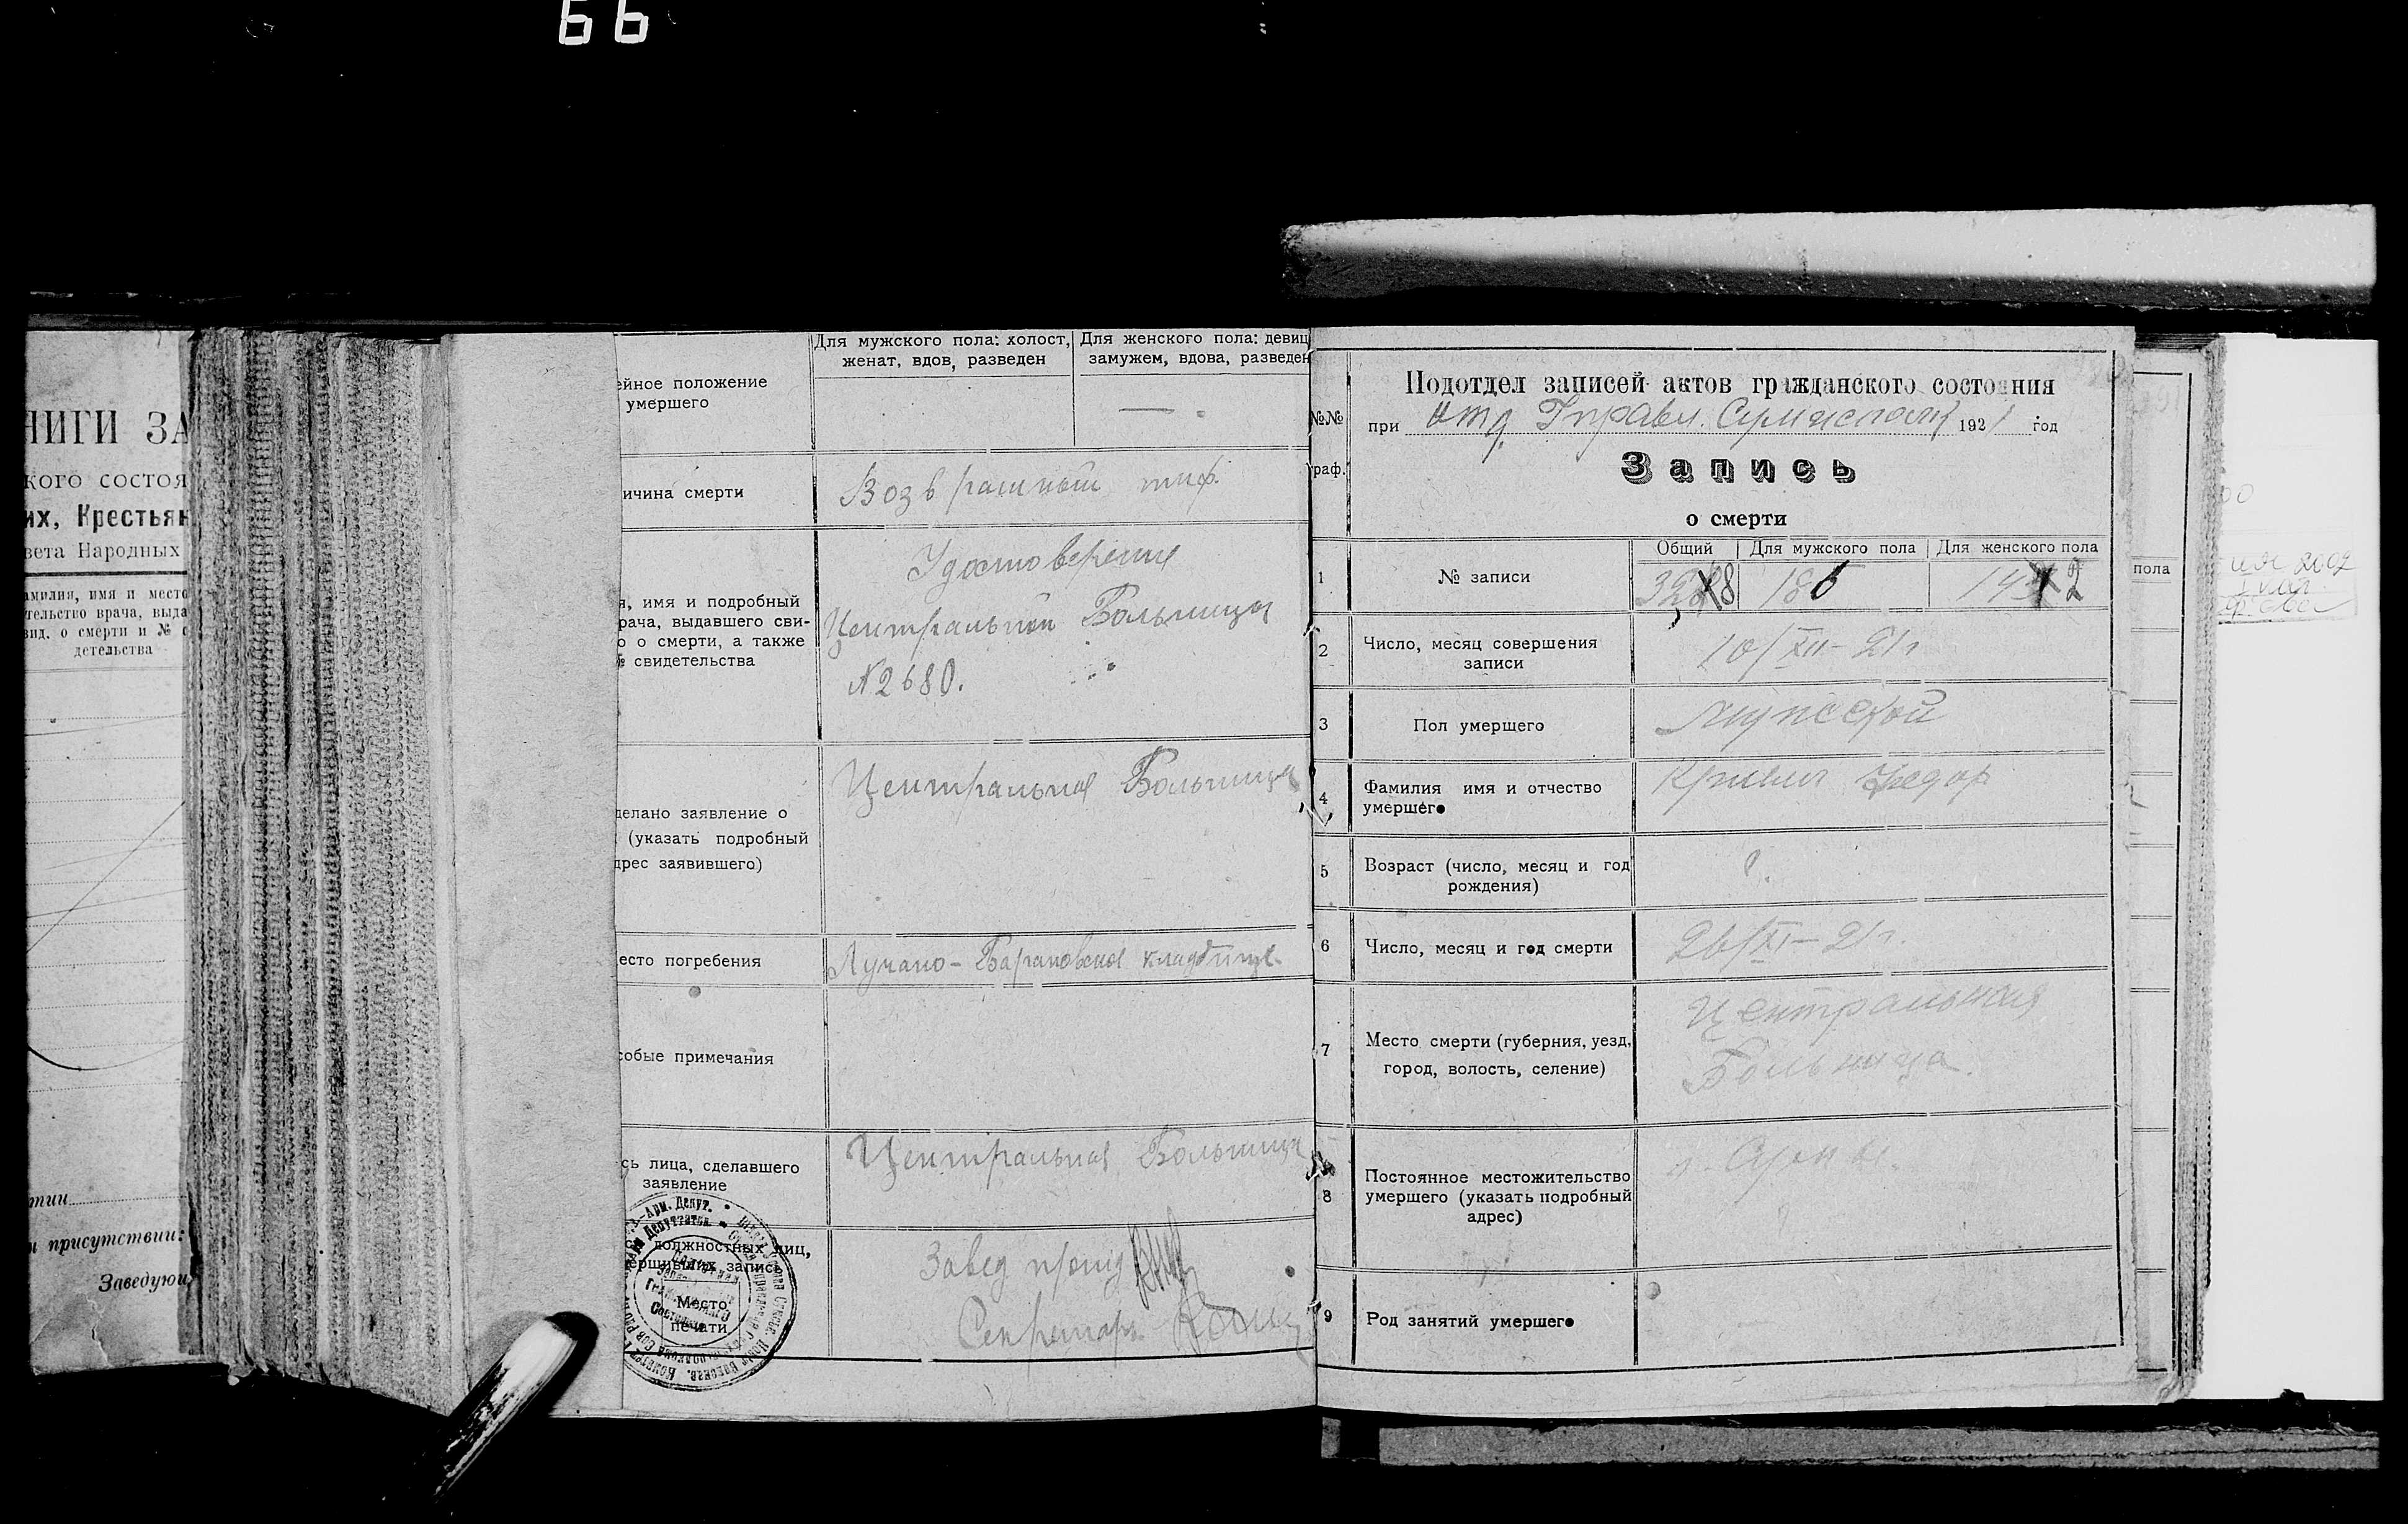 66
НИГИ ЗА
кого состоя
их, Крестьян
вета Народных
амилия, имя и место
тельство врача, выда
вид. о смерти и № с
детельства
тии
и присутствии:
Заведующ
ейное положение
умершего
Для мужского пола: холост,
женат, вдов, разведен
Для женского пола: девиц
замужем, вдова, разведен
—
ичина смерти
Возвратный тиф.
я, имя и подробный
рача, выдавшего сви-
о о смерти, а также
№ свидетельства
Удостоверение
Центральной Больницы
N2680.
делано заявление о
(указать подробный
дрес заявившего)
Центральная Больница
есто погребения
Лучано-Барановское кладбище
собые примечания
сь лица, сделавшего
заявление
Центральная Больница
должностных лиц,
ершивших запись
Место
печати
Завед
Секретарь
№№
граф.
Подотдел записей актов гражданского состояния
при Отд. Управл. 1921 год
Запись
о смерти
1
№ записи
Общий
Для мужского пола
Для женского пола
186
2
Число, месяц совершения
записи
10/XII-21г
3
Пол умершего
Мужской
4
Фамилия имя и отчество
умершего
Федор
5
Возраст (число, месяц и год
рождения)
?
6
Число, месяц и год смерти
26/XI-21г.
7
Место смерти (губерния, уезд,
город, волость, селение)
Центральная
Больница.
8
Постоянное местожительство
умершего (указать подробный
адрес)
г. Сумы.
9
Род занятий умершего
пола